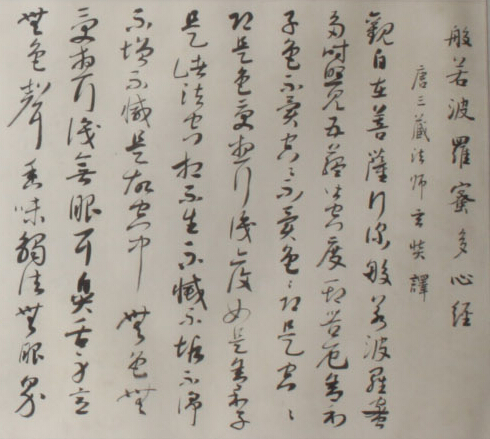 般若波羅蜜多心経
唐三藏法師玄奘譯
觀自在菩薩行深般若波羅蜜
多時照見五蘊皆空度一切苦厄舍利
子色不異空〻不異色〻即是空〻
即是色受想行識亦復如是舍利子
是諸法空相不生不滅不垢不淨
不增不減是故空中無色無
受想行識無眼耳鼻舌身意
無色聲香味觸法無眼界